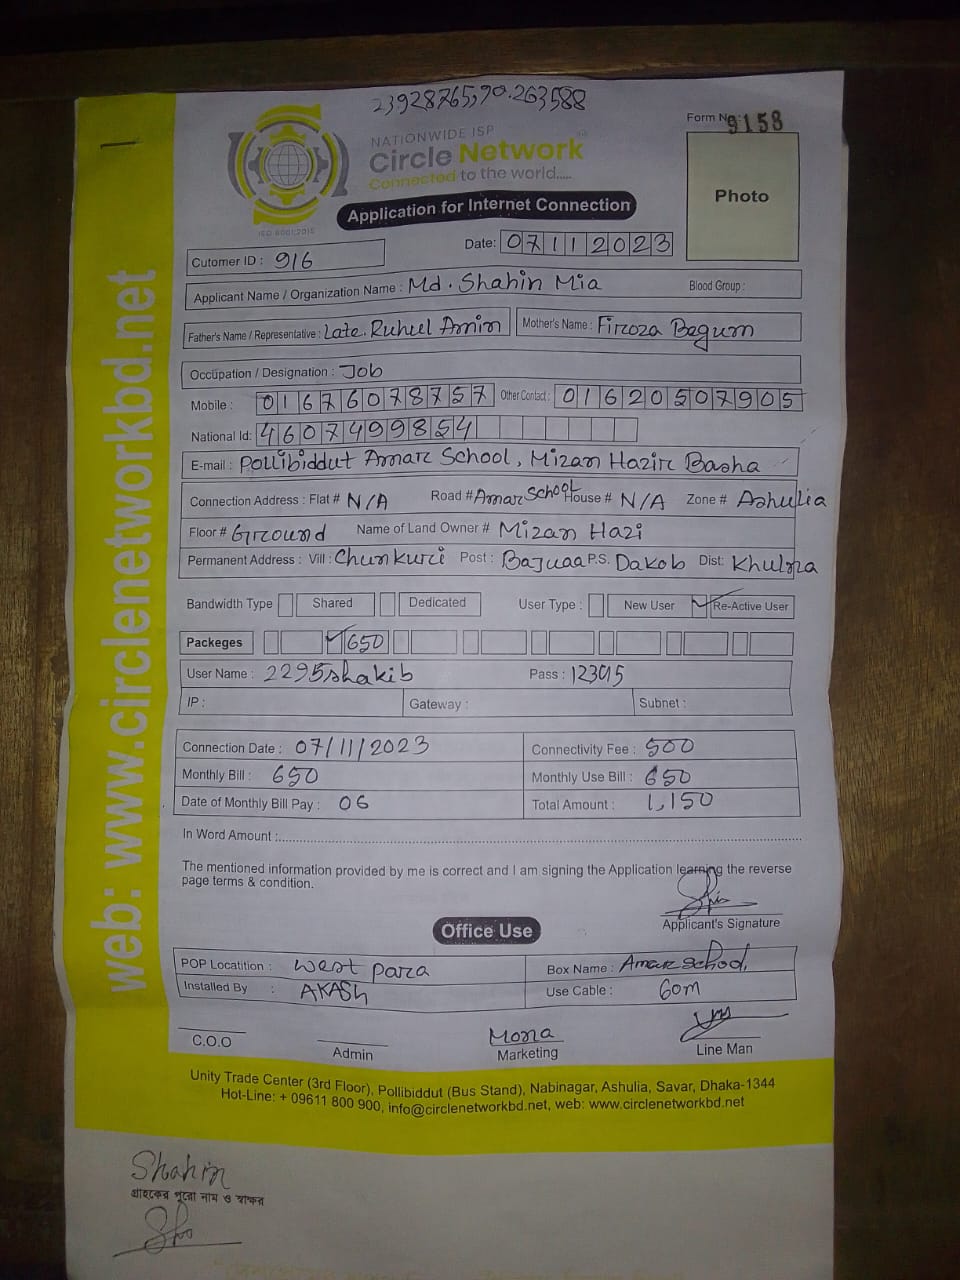 23928765,90.263588
Form No: 9158
NATIONWIDE ISP
Circle Network
Connected to the world.....
ISO 9001:2015
Photo
Application for Internet Connection
Cutomer ID : 916 Date: 07112023
Applicant Name / Organization Name : Md. Shahin Mia Blood Group :
Father's Name / Representative : Late. Ruhul Amin Mother's Name : Firoza Begum
Occupation / Designation : Job
Mobile : 01676078757 Other Contact : 01620507905
National Id: 4607499854
E-mail : Pollibiddut Amar School, Mizan Hazir Basha
Connection Address : Flat # N/A Road # Amar School House # N/A Zone # Ashulia
Floor # Ground Name of Land Owner # Mizan Hazi
Permanent Address : Vill : Chunkuri Post : Bajuaa P.S. Dakob Dist: Khulna
Bandwidth Type Shared Dedicated User Type : New User ✓ Re-Active User
Packeges ✓ 650
User Name : 2295shakib Pass : 123015
IP : Gateway : Subnet :
Connection Date : 07/11/2023 Connectivity Fee : 500
Monthly Bill : 650 Monthly Use Bill : 650
Date of Monthly Bill Pay : 06 Total Amount : 1,150
In Word Amount :
The mentioned information provided by me is correct and I am signing the Application learning the reverse
page terms & condition.
Applicant's Signature
Office Use
POP Locatition : West para Box Name : Amar School,
Installed By : AKASH Use Cable : 60m
Mona
C.O.O Admin Marketing Line Man
Unity Trade Center (3rd Floor), Pollibiddut (Bus Stand), Nabinagar, Ashulia, Savar, Dhaka-1344
Hot-Line: + 09611 800 900, info@circlenetworkbd.net, web: www.circlenetworkbd.net
web: www.circlenetworkbd.net
Shahin
গ্রাহকের পুরো নাম ও স্বাক্ষর